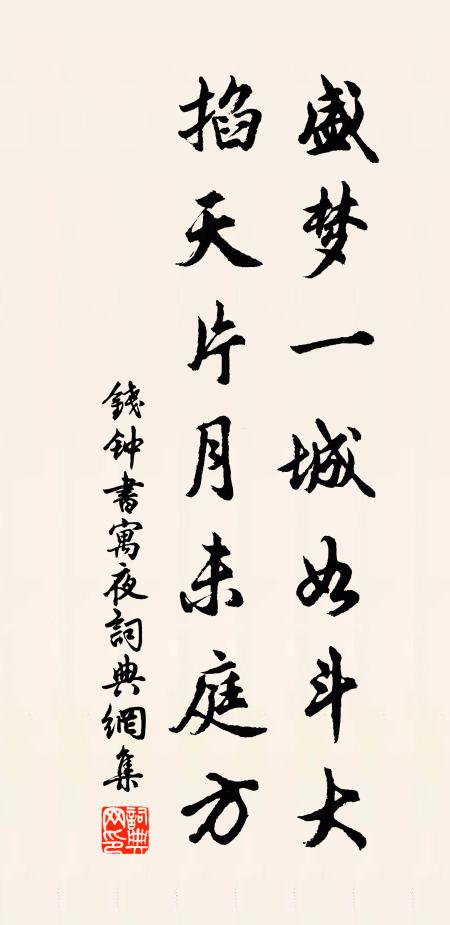 盛梦一城如斗大
掐天片月未庭方
錢钟書寓夜詞典網集
詞典
网印